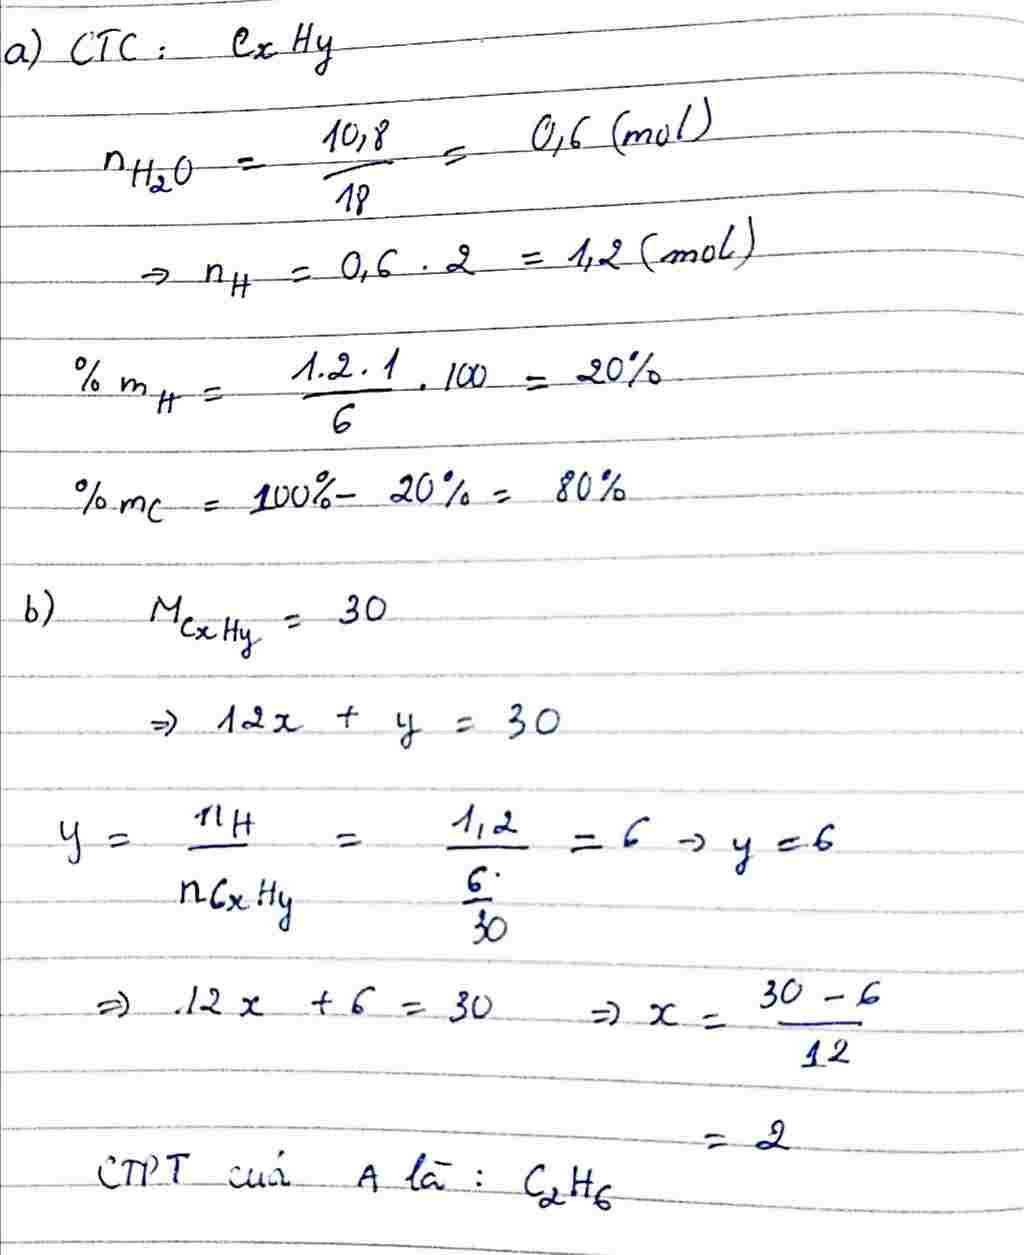 a) CTC: CxHy
nH₂O = 10,8/18 = 0,6 (mol)
⇒ nH = 0,6 . 2 = 1,2 (mol)
% mH = 1.2.1/6 . 100 = 20%
% mC = 100% - 20% = 80%
b) MCxHy = 30
⇒ 12x + y = 30
y = nH/nCxHy = 1,2/(6/30) = 6 → y = 6
⇒ 12x + 6 = 30 ⇒ x = (30 - 6)/12
= 2
CTPT cuả A là: C₂H₆